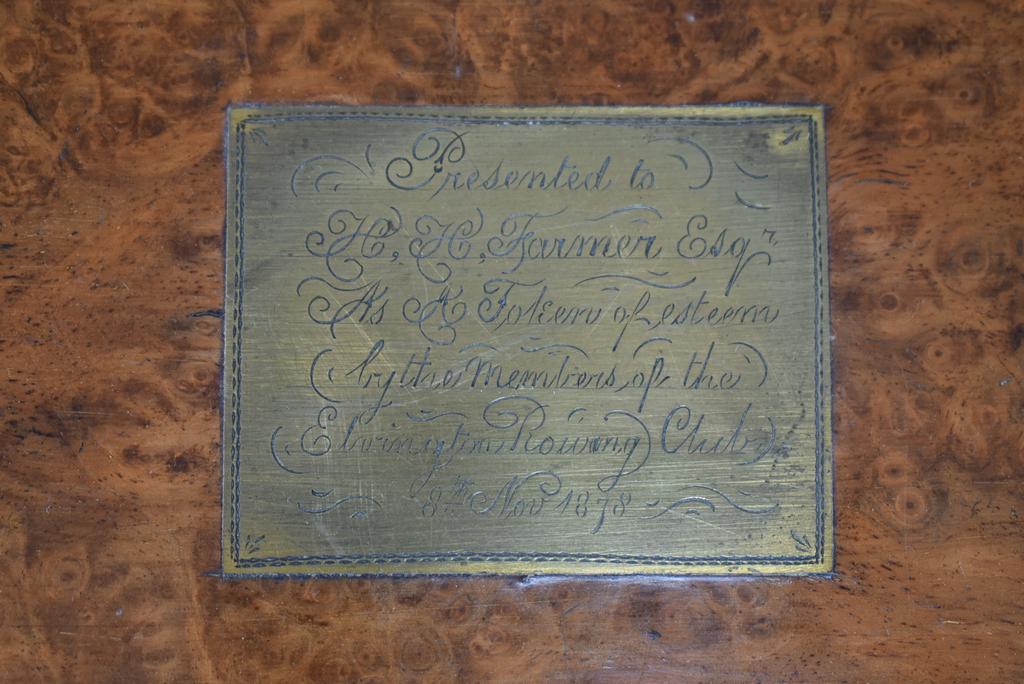 Presented to
H, H, Farmer Esqr
As A Token of esteem
by the Members of the
Elvington Rowing Club
8th Nov 1878